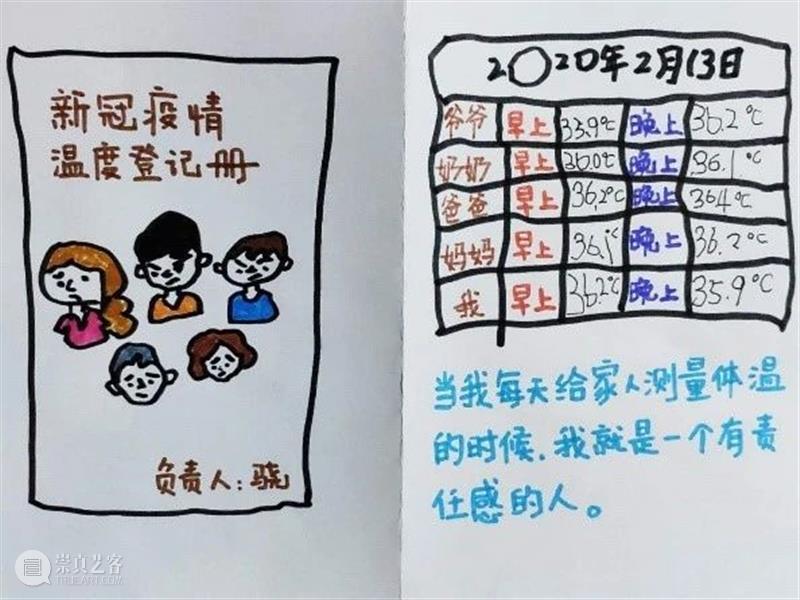 新冠疫情
温度登记册
负责人:骁
2020年2月13日
爷爷 早上 33.9℃ 晚上 36.2℃
奶奶 早上 36.0℃ 晚上 36.1℃
爸爸 早上 36.2℃ 晚上 36.4℃
妈妈 早上 36.1℃ 晚上 36.2℃
我 早上 36.2℃ 晚上 35.9℃
当我每天给家人测量体温
的时候,我就是一个有责
任感的人。
崇真艺客
TRUEART.COM